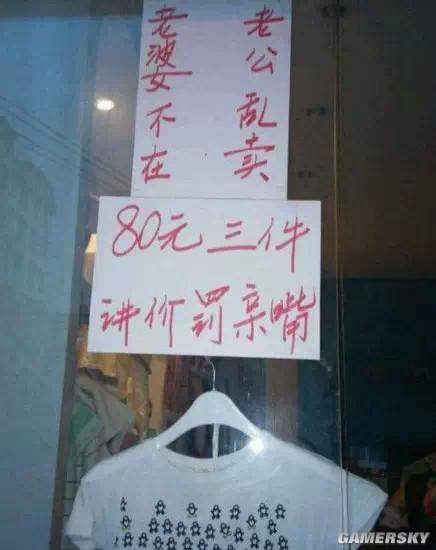 老婆不在
老公乱卖
80元三件
讲价罚亲嘴
GAMERSKY